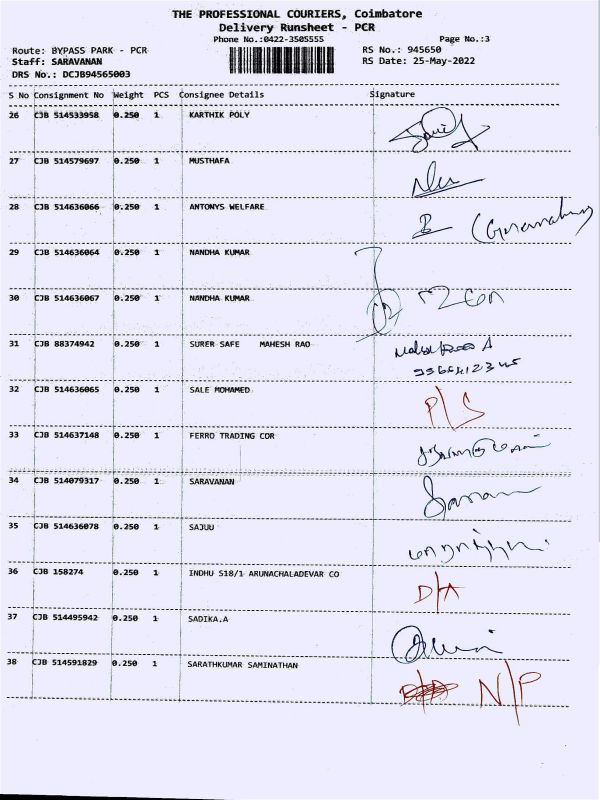 THE PROFESSIONAL COURIERS, Coimbatore
Delivery Runsheet - PCR
Phone No.:0422-3505555 Page No.:3
Route: BYPASS PARK - PCR RS No.: 945650
Staff: SARAVANAN RS Date: 25-May-2022
DRS No.: DCJB94565003
S No Consignment No Weight PCS Consignee Details Signature
26 CJB 514533958 0.250 1 KARTHIK POLY
27 CJB 514579697 0.250 1 MUSTHAFA
28 CJB 514636066 0.250 1 ANTONYS WELFARE
29 CJB 514636064 0.250 1 NANDHA KUMAR
30 CJB 514636067 0.250 1 NANDHA KUMAR
31 CJB 88374942 0.250 1 SURER SAFE MAHESH RAO
32 CJB 514636065 0.250 1 SALE MOHAMED P/S
33 CJB 514637148 0.250 1 FERRO TRADING COR
34 CJB 514079317 0.250 1 SARAVANAN
35 CJB 514636078 0.250 1 SAJUU
36 CJB 158274 0.250 1 INDHU S18/1 ARUNACHALADEVAR CO D/A
37 CJB 514495942 0.250 1 SADIKA.A
38 CJB 514591829 0.250 1 SARATHKUMAR SAMINATHAN N/P